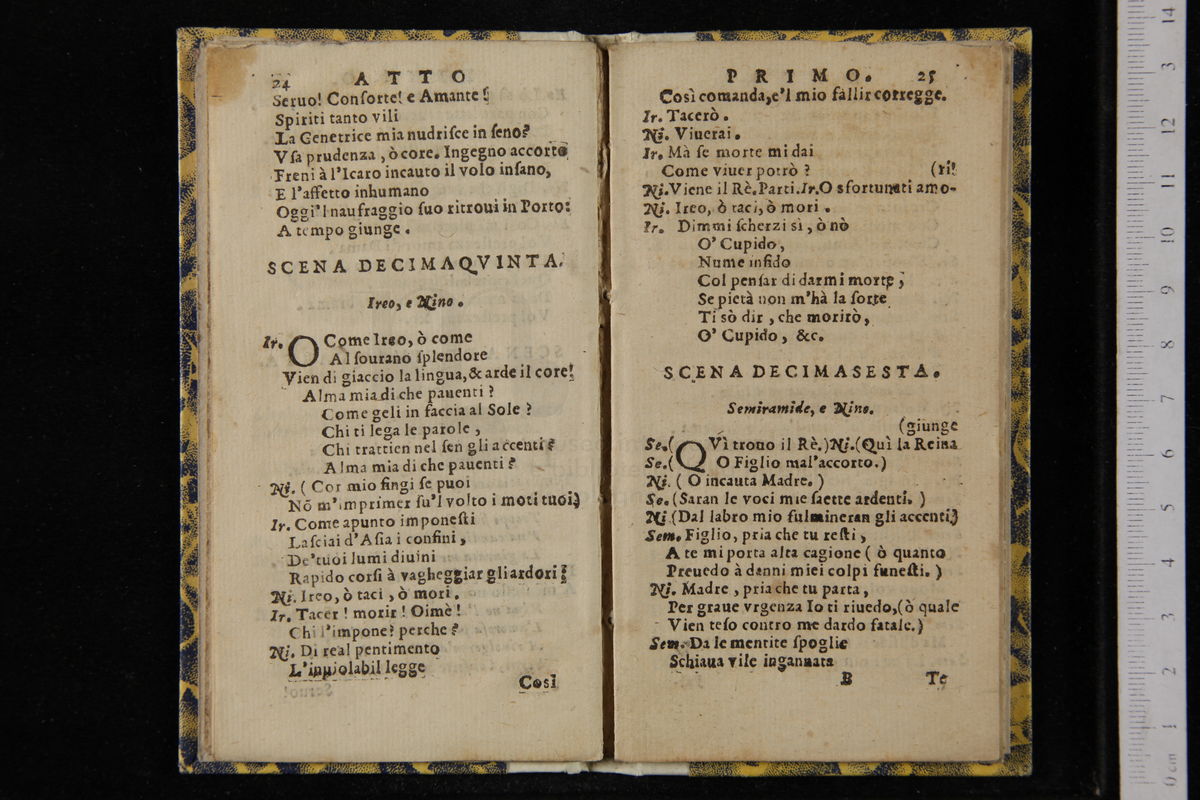 24 ATTO
Seruo! Conſorte! e Amante!
Spiriti tanto vili
La Genetrice mia nudriſce in ſeno?
Vſa prudenza, ò core. Ingegno accorto
Freni à l'Icaro incauto il volo inſano,
E l'affetto inhumano
Oggi'l naufraggio ſuo ritroui in Porto:
A tempo giunge.
SCENA DECIMAQVINTA.
Ireo, e Nino.
Ir. O Come Ireo, ò come
Al ſourano ſplendore
Vien di giaccio la lingua, & arde il core!
Alma mia di che pauenti?
Come geli in faccia al Sole?
Chi ti lega le parole,
Chi trattien nel ſen gli accenti?
Alma mia di che pauenti?
Ni. (Cor mio fingi ſe puoi
Nõ m'imprimer ſu'l volto i moti tuoi)
Ir. Come apunto imponeſti
Laſciai d'Aſia i confini,
De'tuoi lumi diuini
Rapido corſi à vagheggiar gli ardori!
Ni. Ireo, ò taci, ò mori.
Ir. Tacer! morir! Oimè!
Chi l'impone? perche?
Ni. Di real pentimento
L'inuiolabil legge
Così
PRIMO. 25
Così comanda, e'l mio fallir corregge.
Ir. Tacerò.
Ni. Viuerai.
Ir. Mà ſe morte mi dai
Come viuer potrò? (ri!
Ni. Viene il Rè. Parti. Ir. O sfortunati amo-
Ni. Ireo, ò taci, ò mori.
Ir. Dimmi ſcherzi sì, ò nò
O' Cupido,
Nume infido
Col penſar di darmi morte;
Se pietà non m'hà la ſorte
Ti sò dir, che morirò,
O' Cupido, &c.
SCENA DECIMASESTA.
Semiramide, e Nino.
(giunge
Se. (QVì trouo il Rè.) Ni. (Quì la Reina
Se. (O Figlio mal'accorto.)
Ni. (O incauta Madre.)
Se. (Saran le voci mie ſaette ardenti.)
Ni (Dal labro mio fulmineran gli accenti)
Sem. Figlio, pria che tu reſti,
A te mi porta alta cagione (ò quanto
Preuedo à danni miei colpi funeſti.)
Ni. Madre, pria che tu parta,
Per graue vrgenza Io ti riuedo, (ò quale
Vien teſo contro me dardo fatale.)
Sem. Da le mentite ſpoglie
Schiaua vile ingannata
B Te